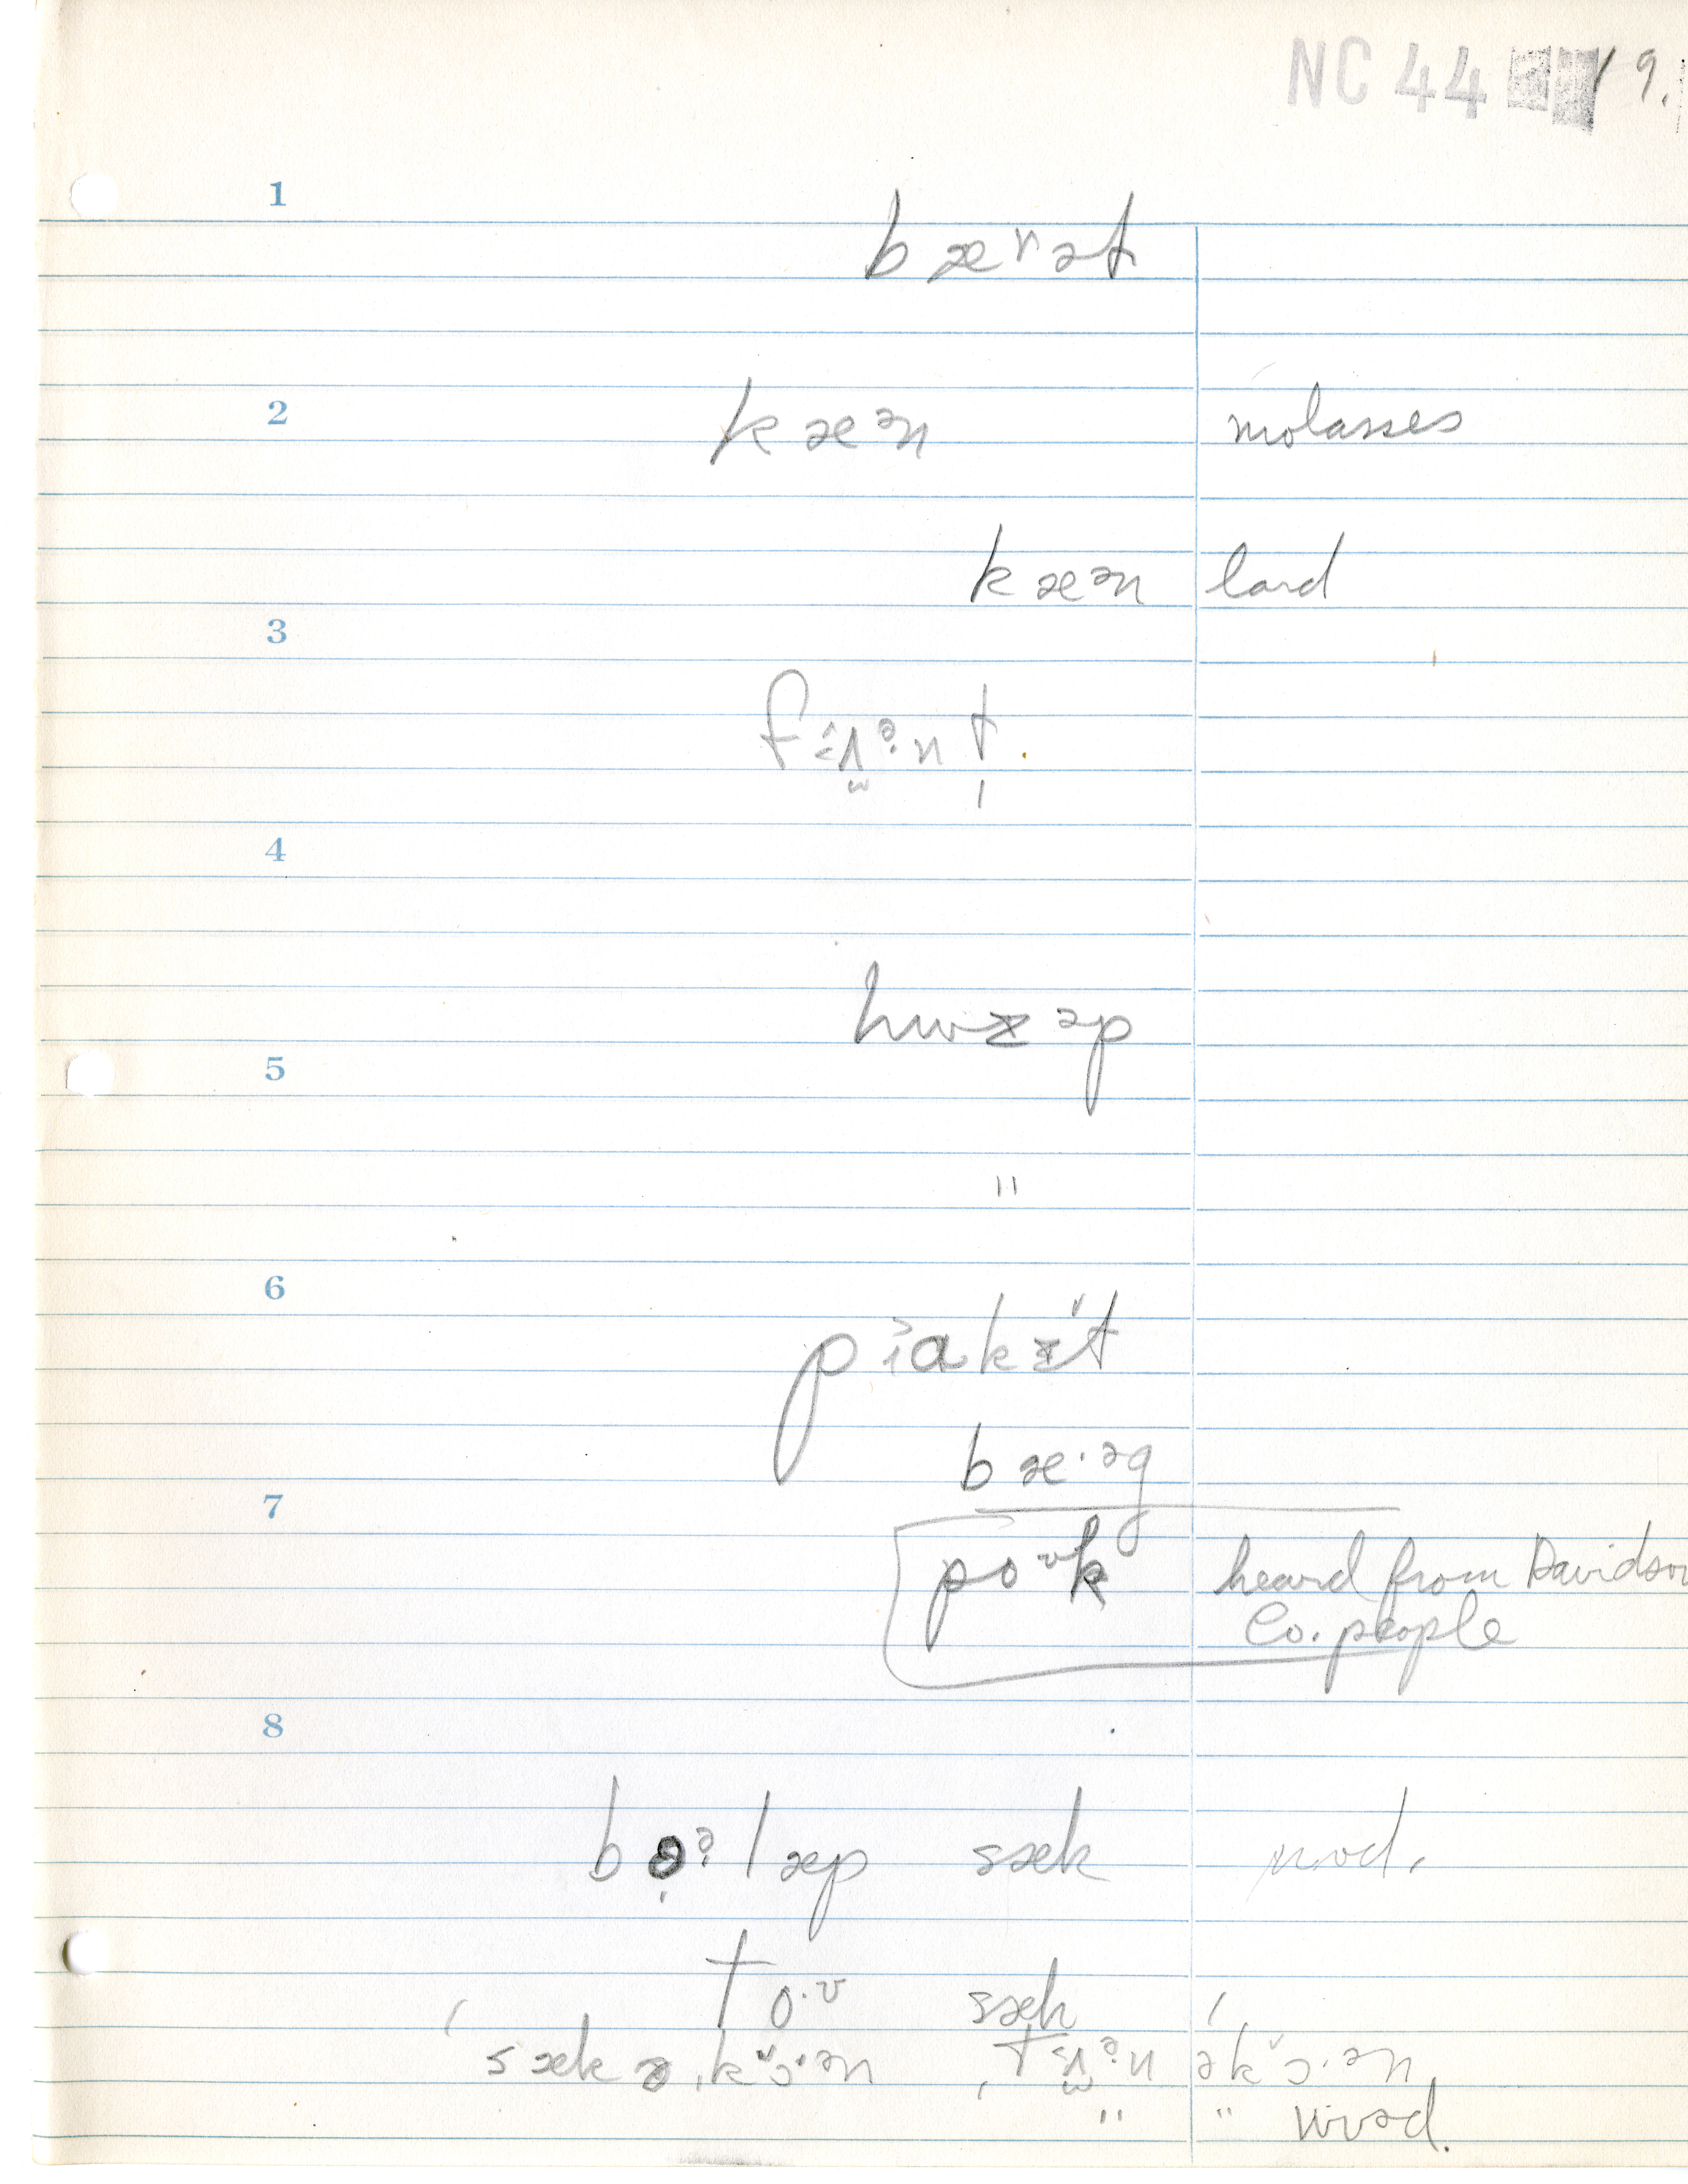 NC 44 19.
1
bærət
2
kæᵊn molasses
kæᵊn lard
3
4
hwɪəp
5
"
6
bæ·əg
7
poᶷk heard from Davidson
Co. people
8
læp sæk mod.
to·ᶷ sæk
sæk ə ˌkɔ·ᵊn əkɔ·ᵊn
" " wʊəd.